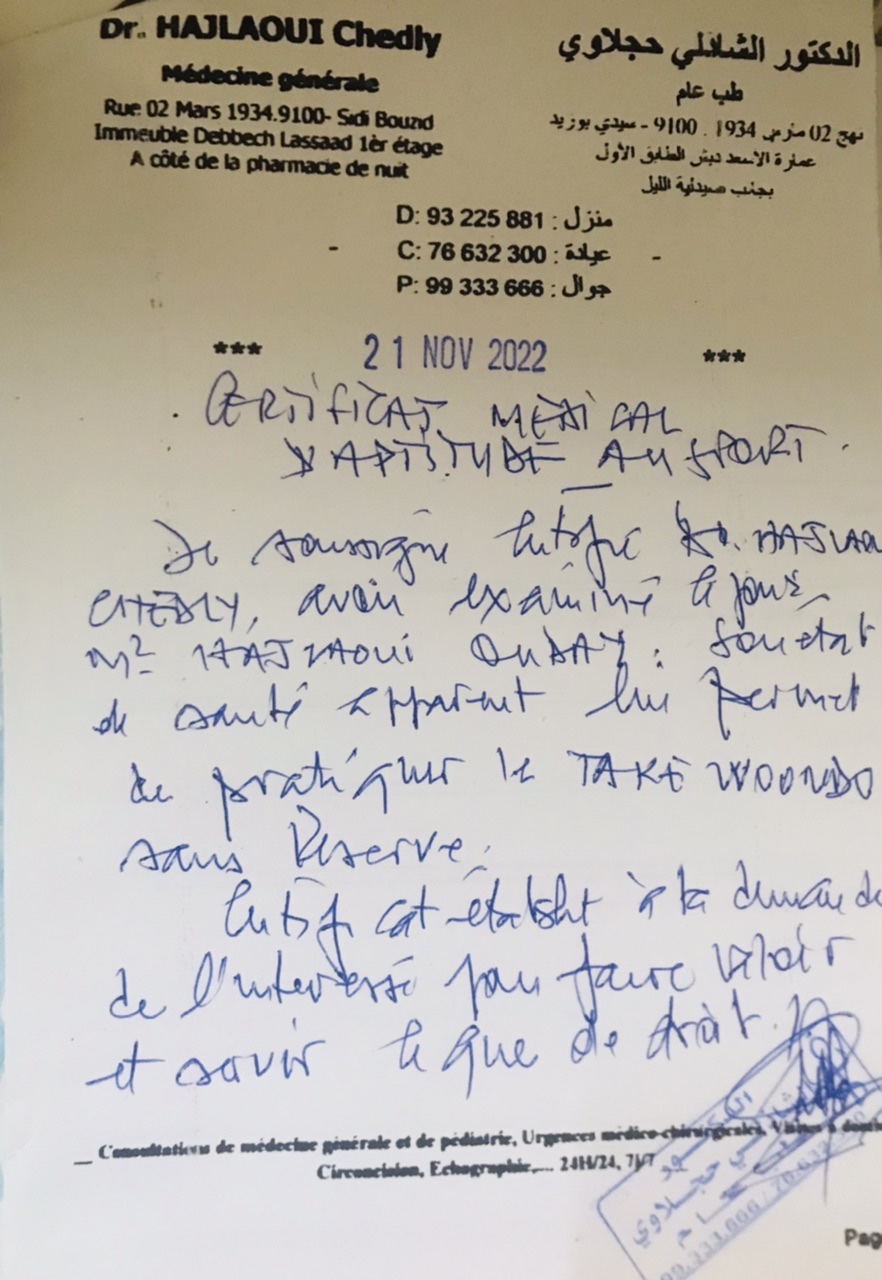 Dr. HAJLAOUI Chedly
Médecine générale
Rue 02 Mars 1934.9100- Sidi Bouzid
Immeuble Debbech Lassaad 1èr étage
A côté de la pharmacie de nuit
الدكتور الشاذلي حجلاوي
طب عام
نهج 02 مارس 1934 . 9100 - سيدي بوزيد
عمارة الاسعد دبش الطابق الأول
بجنب صيدلية الليل
D: 93 225 881 : منزل
- C: 76 632 300 : عيادة -
P: 99 333 666 : جوال
*** 21 NOV 2022 ***
CERTIFICAT MEDICAL
D'APTITUDE AU SPORT.
Je soussigné Dr. HAJLAOU
CHEDLY, avoir examiné le jour
Mr HAJLAOUI OUDAY: Son etat
de santé apparent lui permet
de pratiquer le TAKE WOONDO
sans Réserve.
à la demande
de l'intéressé pour faire valoir
et savoir ce que de droit.
Consultations de médecine générale et de pédiatrie, Urgences médico-chirurgicales, Visites à domi
Circoncision, Echographie,... 24H/24, 7J/7
حجلاوي
Pag